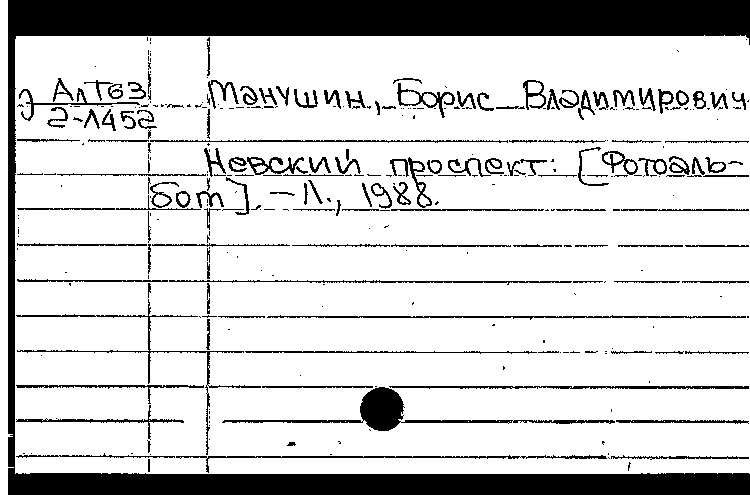 АлТ63
2-Л452
Манушин, Борис Владимирович
Невский проспект: [Фотоаль-
бом]. – Л., 1988.